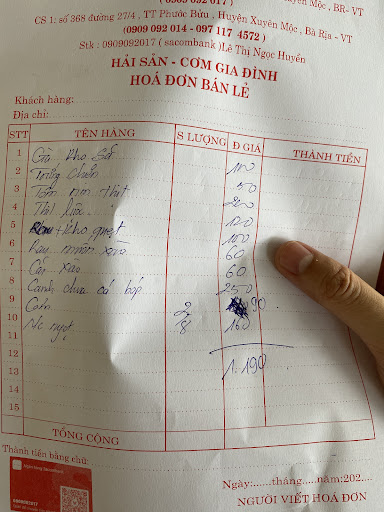 (0909 092 017)
CS 1: số 368 đường 27/4 , TT Phước Bửu , Huyện Xuyên Mộc , Bà Rịa - VT
(0909 092 014 - 097 117 4572 )
Stk : 0909092017 ( sacombank )Lê Thị Ngọc Huyền
HẢI SẢN - CƠM GIA ĐÌNH
HOÁ ĐƠN BÁN LẺ
Khách hàng:
Địa chỉ:
STT TÊN HÀNG S LƯỢNG Đ GIÁ THÀNH TIỀN
1 Gà kho sả 100
2 Trứng chiên 50
3 Tôm rim thịt 200
4 Thịt luộc 120
5 kho quẹt 100
6 muống xào 60
7 xào 60
8 Canh chua cá bóp 250
9 Cơm 2 90
10 Nc ngọt 8 160
11
12
13 1.190
14
15
TỔNG CỘNG
Thành tiền bằng chữ:
0909092017
Ngày:.......tháng.....năm:202....
NGƯỜI VIẾT HOÁ ĐƠN